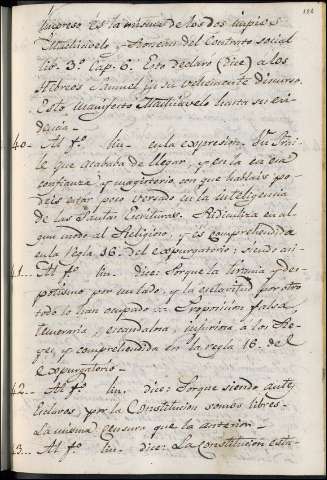 122
expreso es la misma de los dos impios
Machiavelo, y Rousseau del Contrato social
lib. 3º Cap. 6º. Esto declaró (dice) a los
Hebreos Samuel en su vehemente discurso.
Esto manifestó Machiavelo hasta su evi
dencia.
40.. Al fº. lin. en la expresion: Sor Frai
le que acababa de llegar, y en la en esa
confianza, y magisterio con que hablais po
deis estar poco versado en la inteligencia
de las Santas Escrituras. Ridiculiza en al
gun modo al Religioso, y es comprehendida
en la regla 16. del expurgatorio: siendo asi
41.. Al fº. lin. dice: Porque la tirania y des-
potismo por un lado, y la esclavitud por otro
todo lo han ocupado. Proposicion falsa,
temeraria, escandalosa, injuriosa à los Re-
yes, y comprehendida en la regla 16. del
expurgatorio.
42.. Al fº. lin. dice: Porque siendo antes
Esclavos, por la Constitucion somos libres.
La misma censura que la anterior.
43.. Al fº. lin. dice: La Constitucion esta-